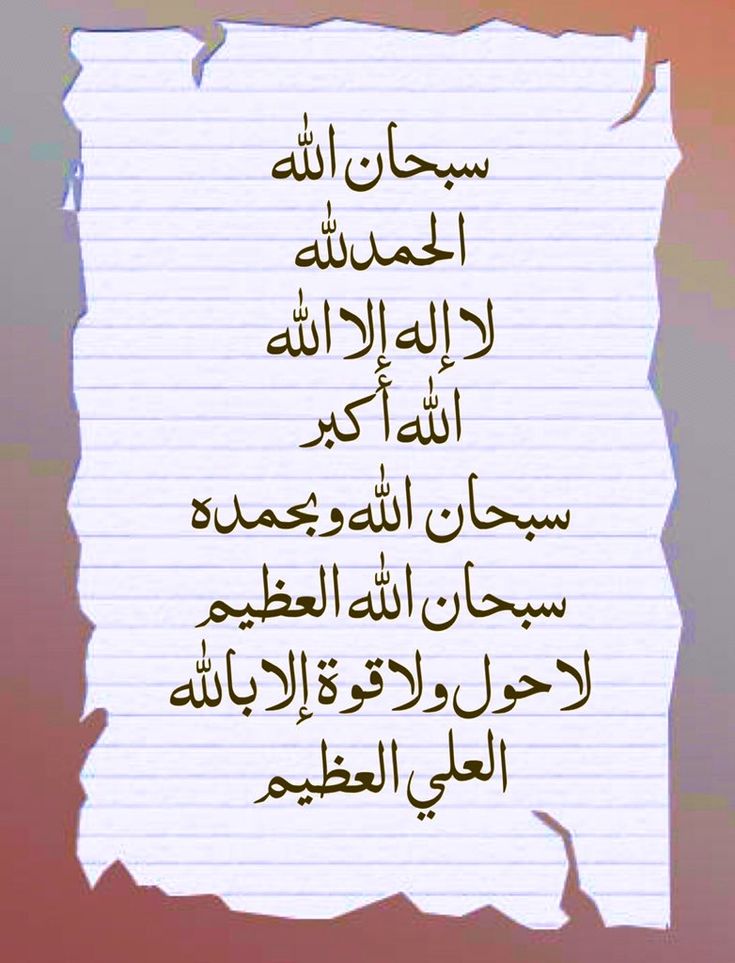 سبحان الله
الحمدلله
لا إله إلا الله
الله أكبر
سبحان الله وبحمده
سبحان الله العظيم
لا حول ولا قوة إلا بالله
العلي العظيم